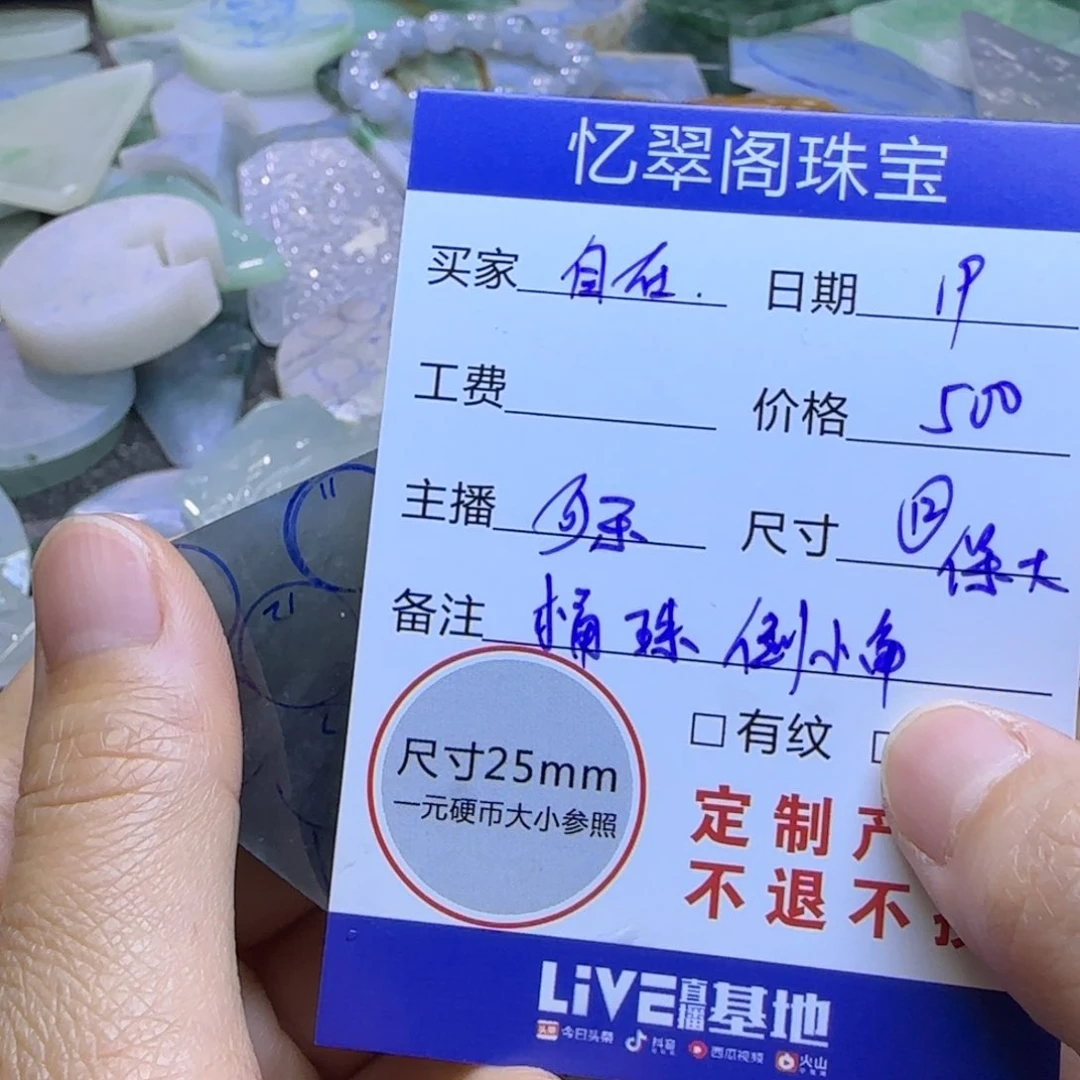 忆翠阁珠宝
买家 自在. 日期
工费 价格 500
主播 尺寸 保大
备注 桶珠 倒小角
□ 有纹
尺寸25mm
一元硬币大小参照
定制产
不退不
LiVE直播基地
今日头条 抖音 西瓜视频 火山
11
21